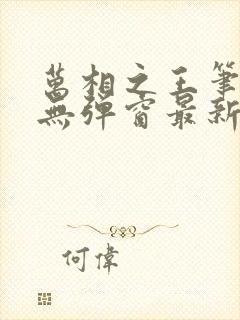 萬相之王筆
無彈窗最新
何偉